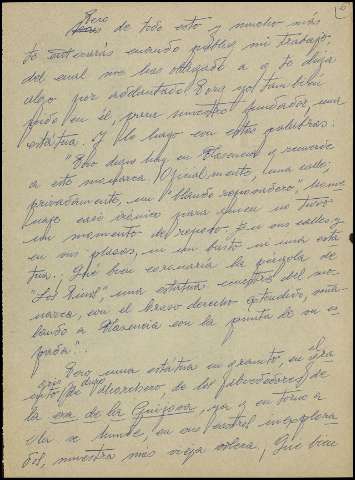 6
Pero
de todo esto y mucho más
te enterarás cuando publiq. mi trabajo,
del cual me has obligado a q. te diga
algo por adelantado. Pero yo también
pido en él, para nuestro fundador, una
estatua. Y lo hago con estas palabras:
"Poco hay en Plasencia q. recuerde
a este monarca. Oficialmente, una calle;
privadamente, un "blando reposadero",
casi irónico para quien no tuvo
un momento de reposo. En sus calles y
en sus plazas, ni un busto ni una esta
tua. ¡Qué bien coronaría la pérgola de
"Los Pinos", una estatua ecuestre del mo-
narca, con el brazo derecho extendido, seña-
lando a Plasencia con la punta de su es
pada!".
Pero una estatua en granito, en el
de los alrededores de
la era de la Guijosa, ya q. en torno a
ella se hunde, en ese
nuestra más vieja ¡Qué bien